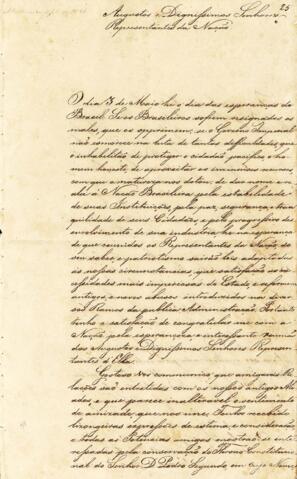 25
Augustos e Dignissimos Senhores
Representantes da Nação
O dia 3 de Maio he o dia das esperanças do
Brasil. Se os Brasileiros sofrem resignados os
males, que os oprimem, se o Governo Imperial
não esmorece na luta de tantas difficuldades, que
o inhabilitão de proteger o cidadão pacifico e ho-
mem honesto, de aproveitar os immensos recursos
com que a natureza nos dotou, de dar nome e
vida á Nação Brasileira pela estabilidade
de suas Instituições, pela paz, segurança, e tran-
quilidade de seus Cidadãos, e pelo progressivo des-
envolvimento de sua industria, he na esperança
de que reunidos os Representantes da Nação, do
seu saber, e patriotismo sairão leis adaptadas
ás nossas circunstancias, que satisfação as ne-
cessidades mais imperiosas do Estado, e reformem
antigos, e novos abusos introduzidos nos diver-
sos Ramos da publica Administração. Portanto
tenho a satisfação de congratular-me com a
Nação pela esperançosa e interessante reunião
dos Augustos e Dignissimos Senhores Represen-
tantes d'Ella.
Gostoso Vos communico que amigaveis Re-
lações são entretidas com os nossos antigos Alia-
dos, e que parece inalteravel o sentimento
de amizade, que nos une. Tenho recebido
lizongeiras expressões de estima, e consideração
e todas as Potencias amigas mostrão-se inte-
ressadas pela conservação do Throno Constitucio-
nal do Senhor D. Pedro Segundo em Cujo Nome